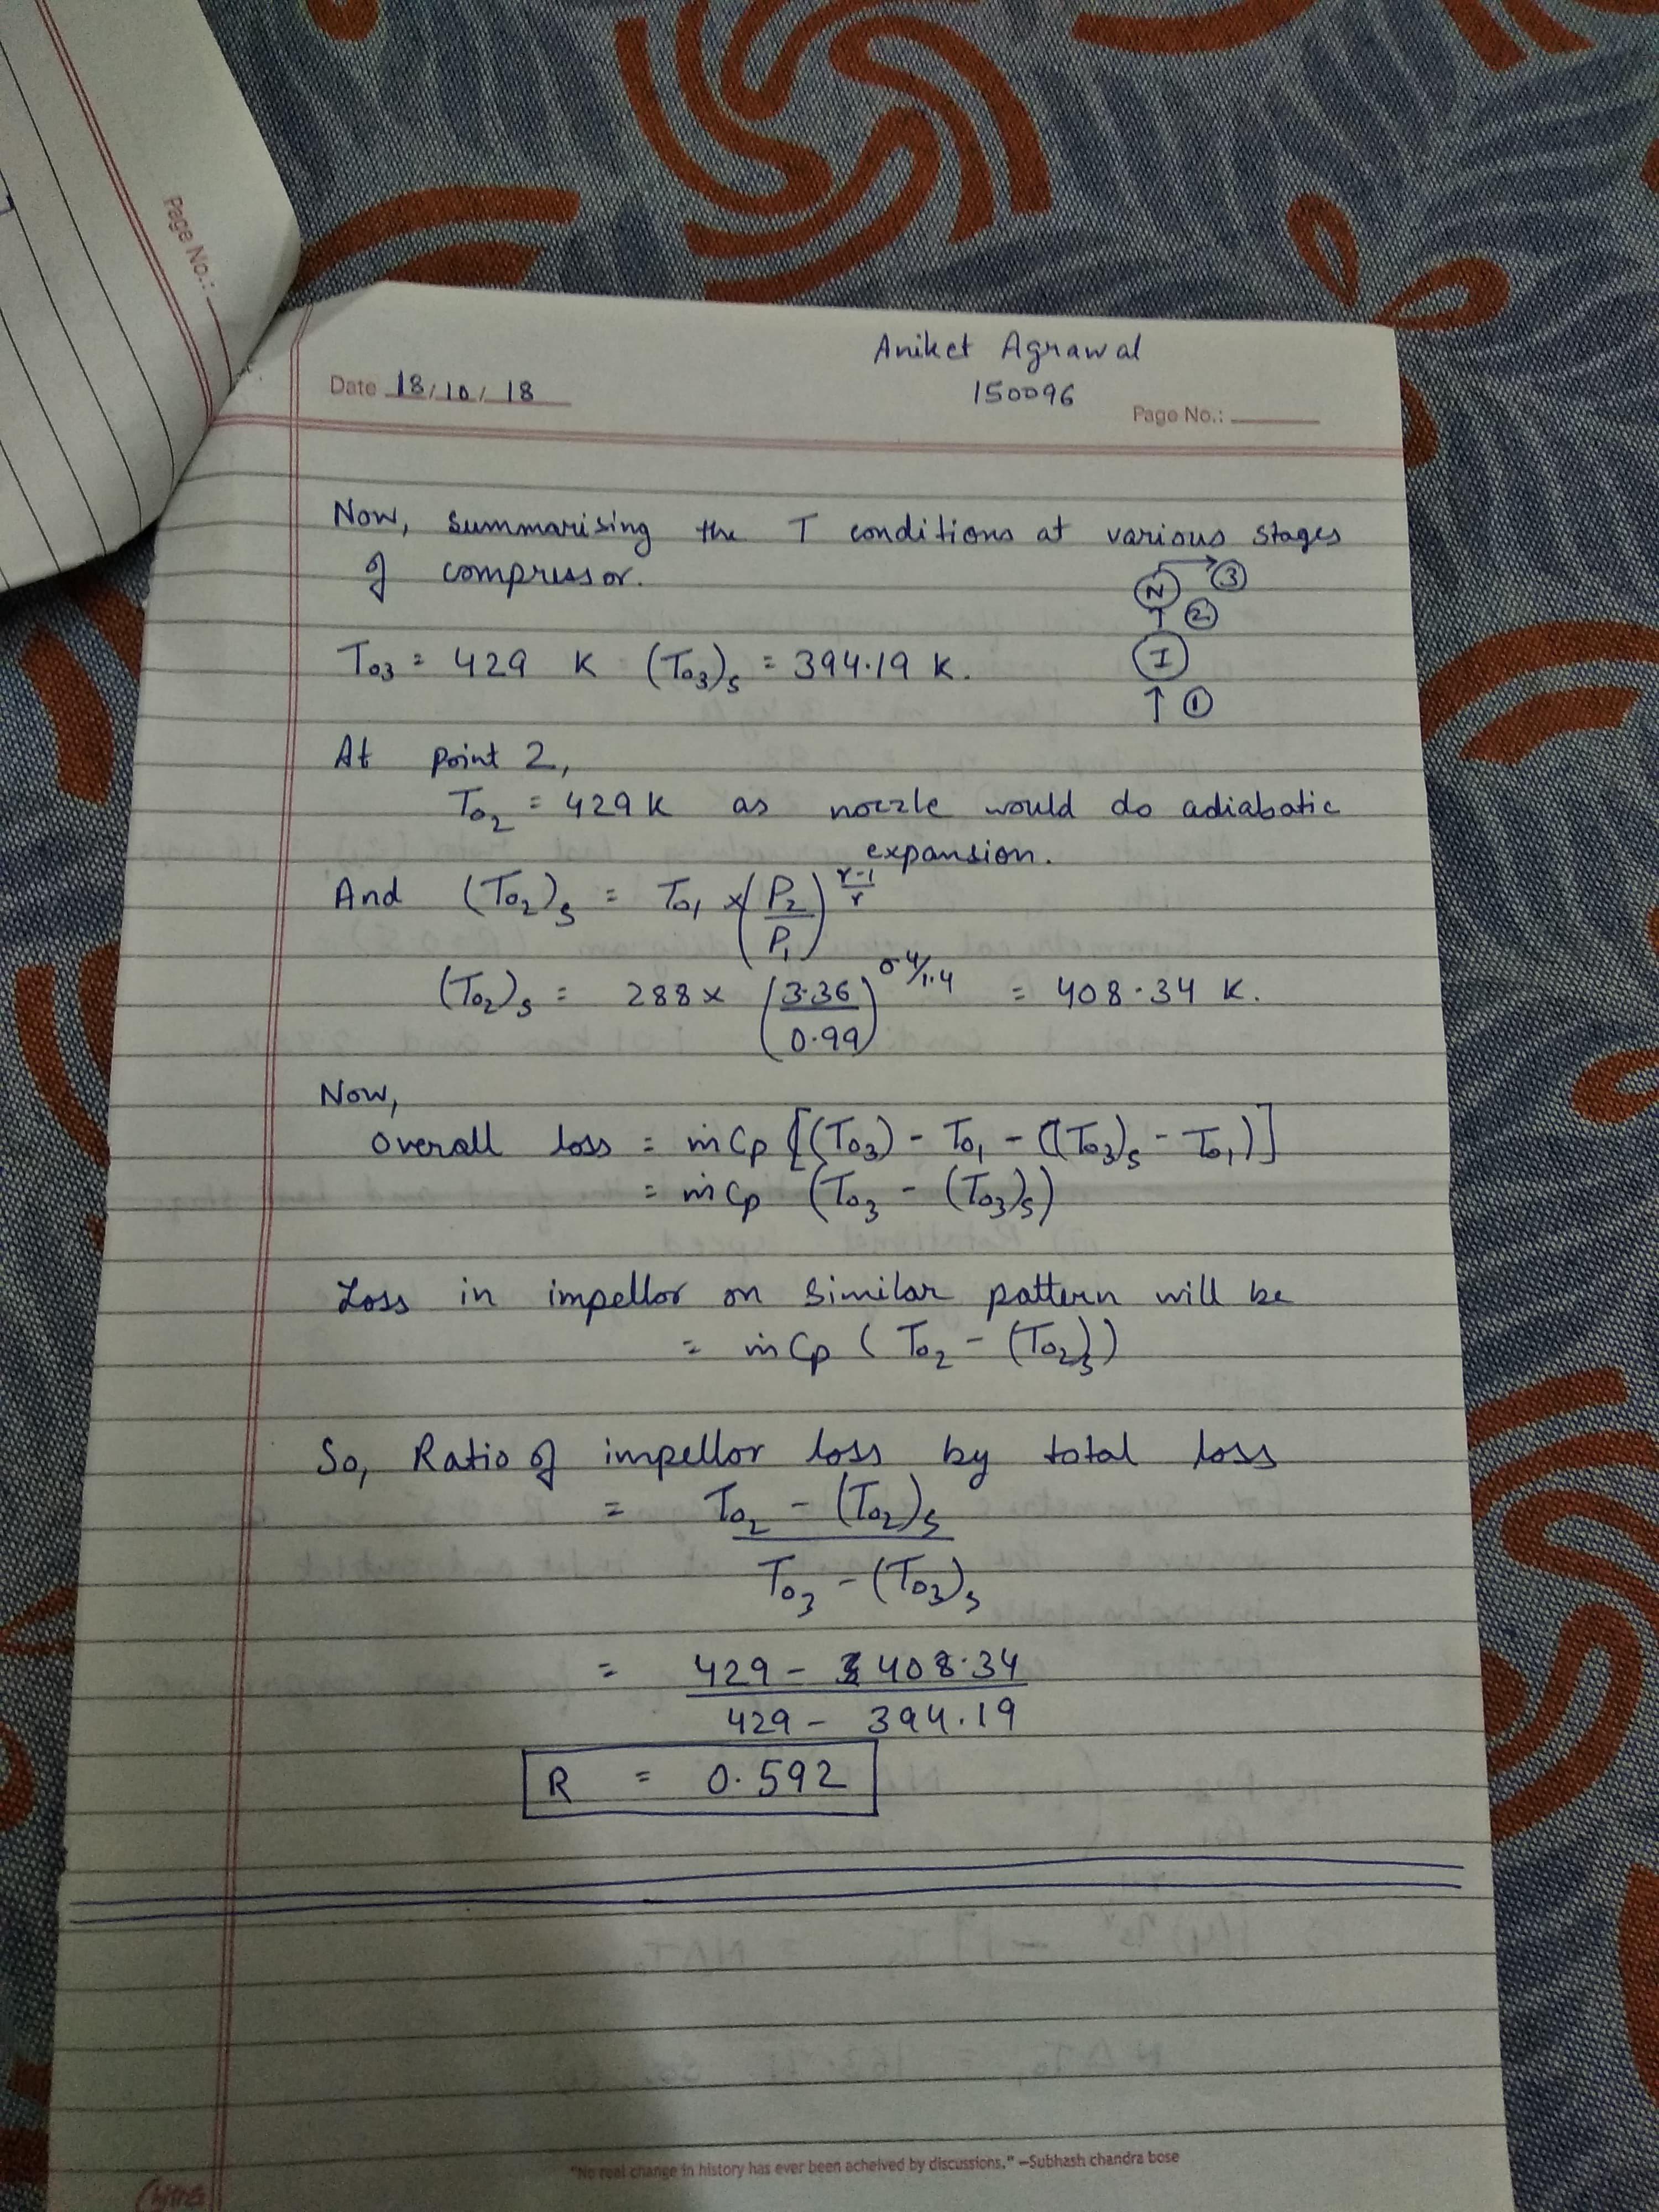 Page No.:
Aniket Agrawal
Date 18/10/18
150096
Page No.:
Now, summarising the T conditions at various stages
of compressor.
N → 3
↑ 2
I
↑ 1
T₀₃ = 429 K (T₀₃)ₛ = 394.19 K.
At point 2,
T₀₂ = 429 K as nozzle would do adiabatic
expansion.
And (T₀₂)ₛ = T₀₁ × (P₂/P₁)^(γ-1/γ)
(T₀₂)ₛ = 288 × (3.36/0.99)^(0.4/1.4) = 408.34 K.
Now,
Overall loss = ṁ Cp [(T₀₃) - T₀₁ - ((T₀₃)ₛ - T₀₁)]
= ṁ Cp (T₀₃ - (T₀₃)ₛ)
Loss in impellor on similar pattern will be
= ṁ Cp (T₀₂ - (T₀₂)ₛ)
So, Ratio of impellor loss by total loss
= T₀₂ - (T₀₂)ₛ
T₀₃ - (T₀₃)ₛ
= 429 - 408.34
429 - 394.19
R = 0.592
"No real change in history has ever been acheived by discussions." –Subhash chandra bose